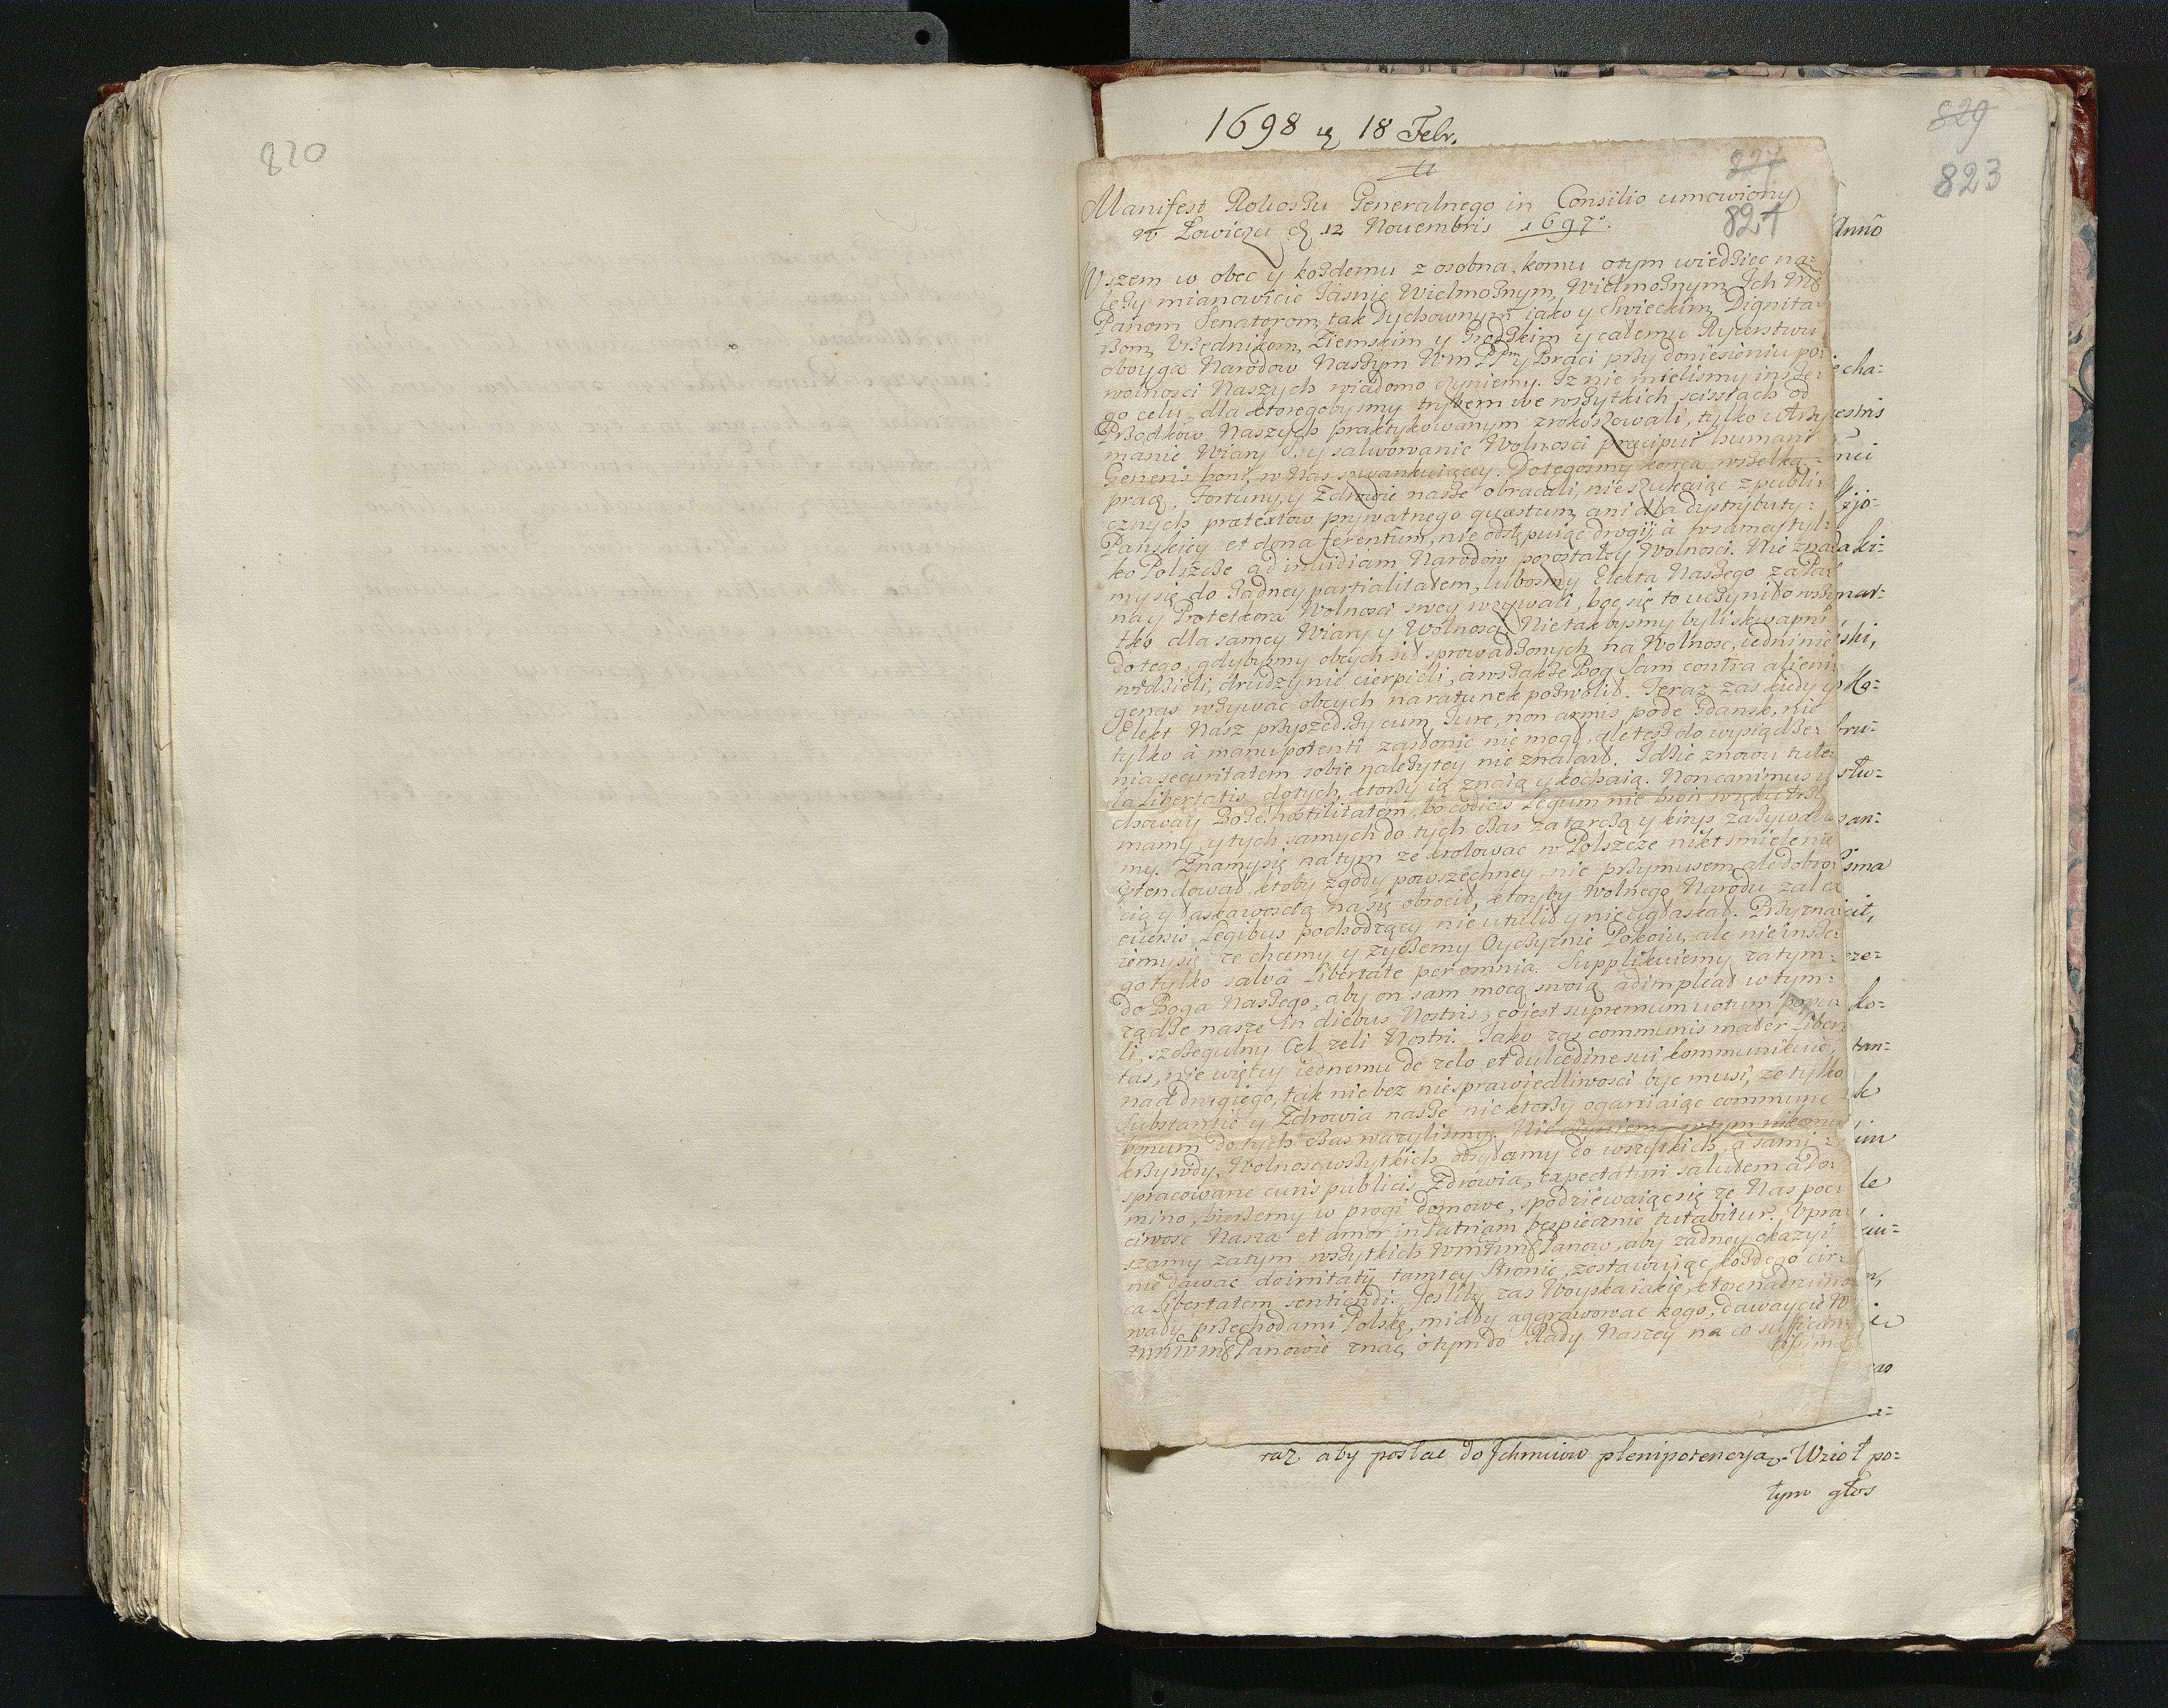 820
1698 q 18 Febr.
829
823
827
821
Manifest Rokoszu Generalnego in Consilio umowiony
w Łowiczu d. 12 Nouembris 1697.
Anno
Wszem w obec y kożdemu z osobna, komu o tym wiedziec na=
leży mianowicie Jasnie Wielmożnym, Wielmożnym, Ich Mć
Panom Senatorom, tak Duchownym iako y Swieckim, Dignita=
rzom, Vrzędnikom, Ziemskim y Grodzkim y całemu Rycerstwu
oboyga Narodow Naszym Wm PPm y Braci przy doniesieniu po=
wolnosci Naszych wiadomo czyniemy. Iz nie mielismy insze=
echa=
go celu, dla ktoregobysmy trybem we wszytkich scissiach od
Przodkow Naszych praktykowanym zrokoszowali, tylko utrzy=
estris
manie Wiary S. y salwowanie Wolnosci præcipui humani
Generis boni, w Nas szwankuiącey. Do tegosmy konca wszelką
nci
pracą, Fortuny, y Zdrowie nasze obracali, nie szukaiąc z publi=
cznych prætextow prywatnego quæstum, ani dla dystrybuty=
zjo=
Panskiey et dona ferentum, nie odstępuiąc drogi, a w samey tyl=
ko Polszcze ad inuidiam Narodow pozostałey Wolnosci. Nie zna=
aki=
my się do żadney partialitatem, lubosmy Elekta Naszego za Pa=
na y Protektora Wolnosci swey wzywali, boć się to uczyniło wszy=
nat=
tko dla samey Wiary y Wolnosci. Nie tak bysmy byli skwapni
do tego, gdybysmy obcych sił sprowadzonych na Wolnosc, iedni nie
ski,
widzieli, drudzy nie cierpieli, a wszakże Bog sam contra alieni=
genas wzywac obcych na ratunek pozwolił. Teraz zas kiedy
Elekt Nasz przyszedszy cum Iure, non armis, pode Gdansk, nie
tylko à manu potenti zasłonic nie mogł, ale też do wysiądze=
bru=
nia securitatem sobie należytey nie znalazł. Idzie znowu tute=
la Libertatis do tych, ktorzy ią znaią y kochaią. Non canimus
stw=
choway Boże! hostilitatem, bo codices Legum nie bron w ręku trzy=
mamy, y tych samych do tych czas za tarczą y kirys zażywali=
an=
my. Znamy się na tym ze krolowac w Polszcze nikt smiele nie
sma
cią y łaskawoscią na się obrocił, ktoryby Wolnego Narodu zalca
euersis Legibus pochodzący nie utulił y nie ugłaskał. Przyzna=
cit,
iemy się ze chcemy y zyczemy Oyczyznie Pokoiu, ale nie insze=
go tylko salvâ Libertate per omnia. Supplikuiemy zatym
rze=
do Boga Naszego, aby on sam mocą swoią adimpleał w tym
rządze nasze in diebus Nostris, co iest supremum uotum popu=
ko=
li, szczegulny Cel zeli Nostri. Jako zas communis mater Liber=
tas, nie więcey iednemu de zelo et dulcedine sui kommunikuie,
tan=
nad drugiego, tak nie bez niesprawiedliwosci byc musi, ze tylko
Substantie y Zdrowia nasze niektorzy oganiaiąc commune
k
bonum do tych czas wazylismy. Nie czyniemy w tym nikomu
krzywdy, Wolnosc wszytkich odsyłamy do wszytkich, a sami
im
spracowane curis publicis Zdrowia, expectaturi salutem a Do=
mino, bierzemy w progi domowe, spodziewaiąc się ze Nas poc=
le
ciwosc Nasza et amor in Patriam bespiecznie tutabitur. Vpra=
szamy zatym wszytkich Wm Panow, aby żadney okazyi
nie dawac do irritatÿ tamtey Stronie, zostawuiąc każdego cir=
ca Libertatem sentiendi. Jesliby zas Woyska iakie, ktore nadruino=
wały przechodami Polskę, miałby aggrawowac kogo, dawaycie
Panowie znac o tym do Rady Naszey na co
tissima
raz aby posłac do Jchmciow plenipotencyą. Wzioł po=
tym głos